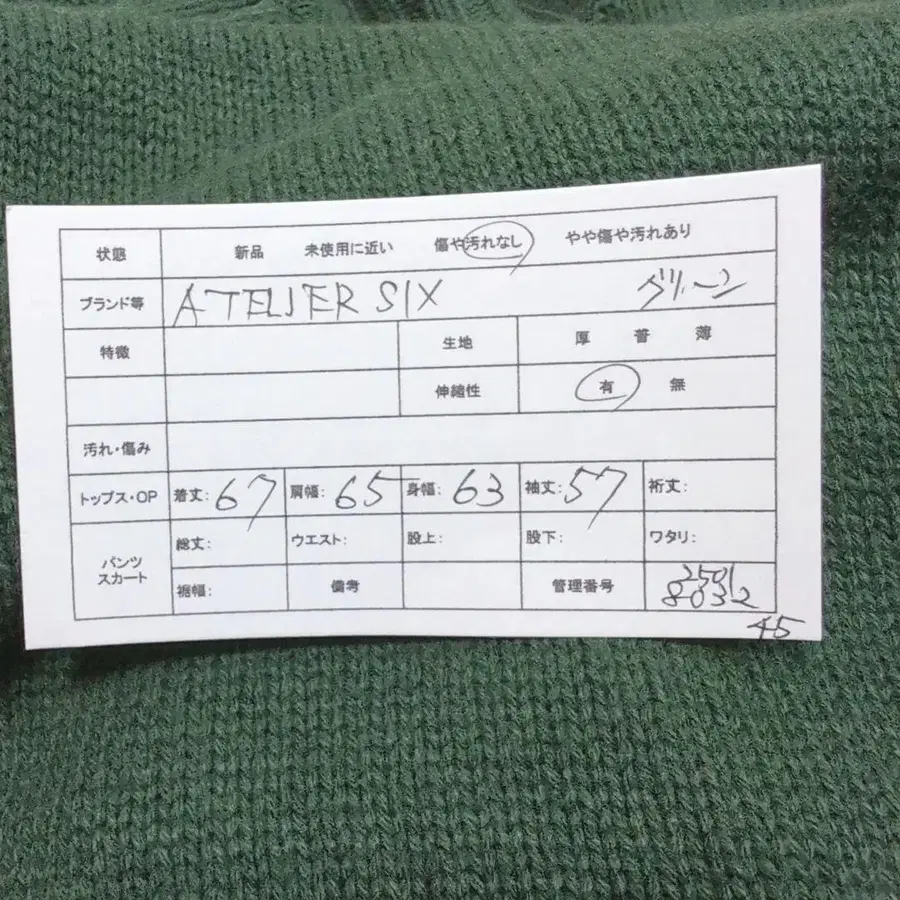 状態 新品 未使用に近い 傷や汚れなし やや傷や汚れあり
ブランド等 ATELIER SIX グリーン
特徴 生地 厚 普 薄
伸縮性 有 無
汚れ・傷み
トップス・OP 着丈: 67 肩幅: 65 身幅: 63 袖丈: 57 裄丈:
パンツ
スカート
総丈: ウエスト: 股上: 股下: ワタリ:
裾幅: 備考 管理番号 2501
8032
45